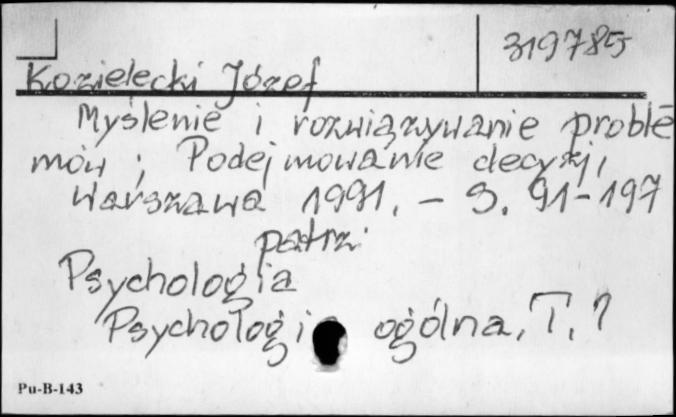 319785
Kozielecki Józef
Myślenie i rozwiązywanie proble
mów ; Podejmowanie decyzji,
Warszawa 1991. – S. 91-197
patrz:
Psychologia
Psychologi ogólna. T. 1
Pu-B-143